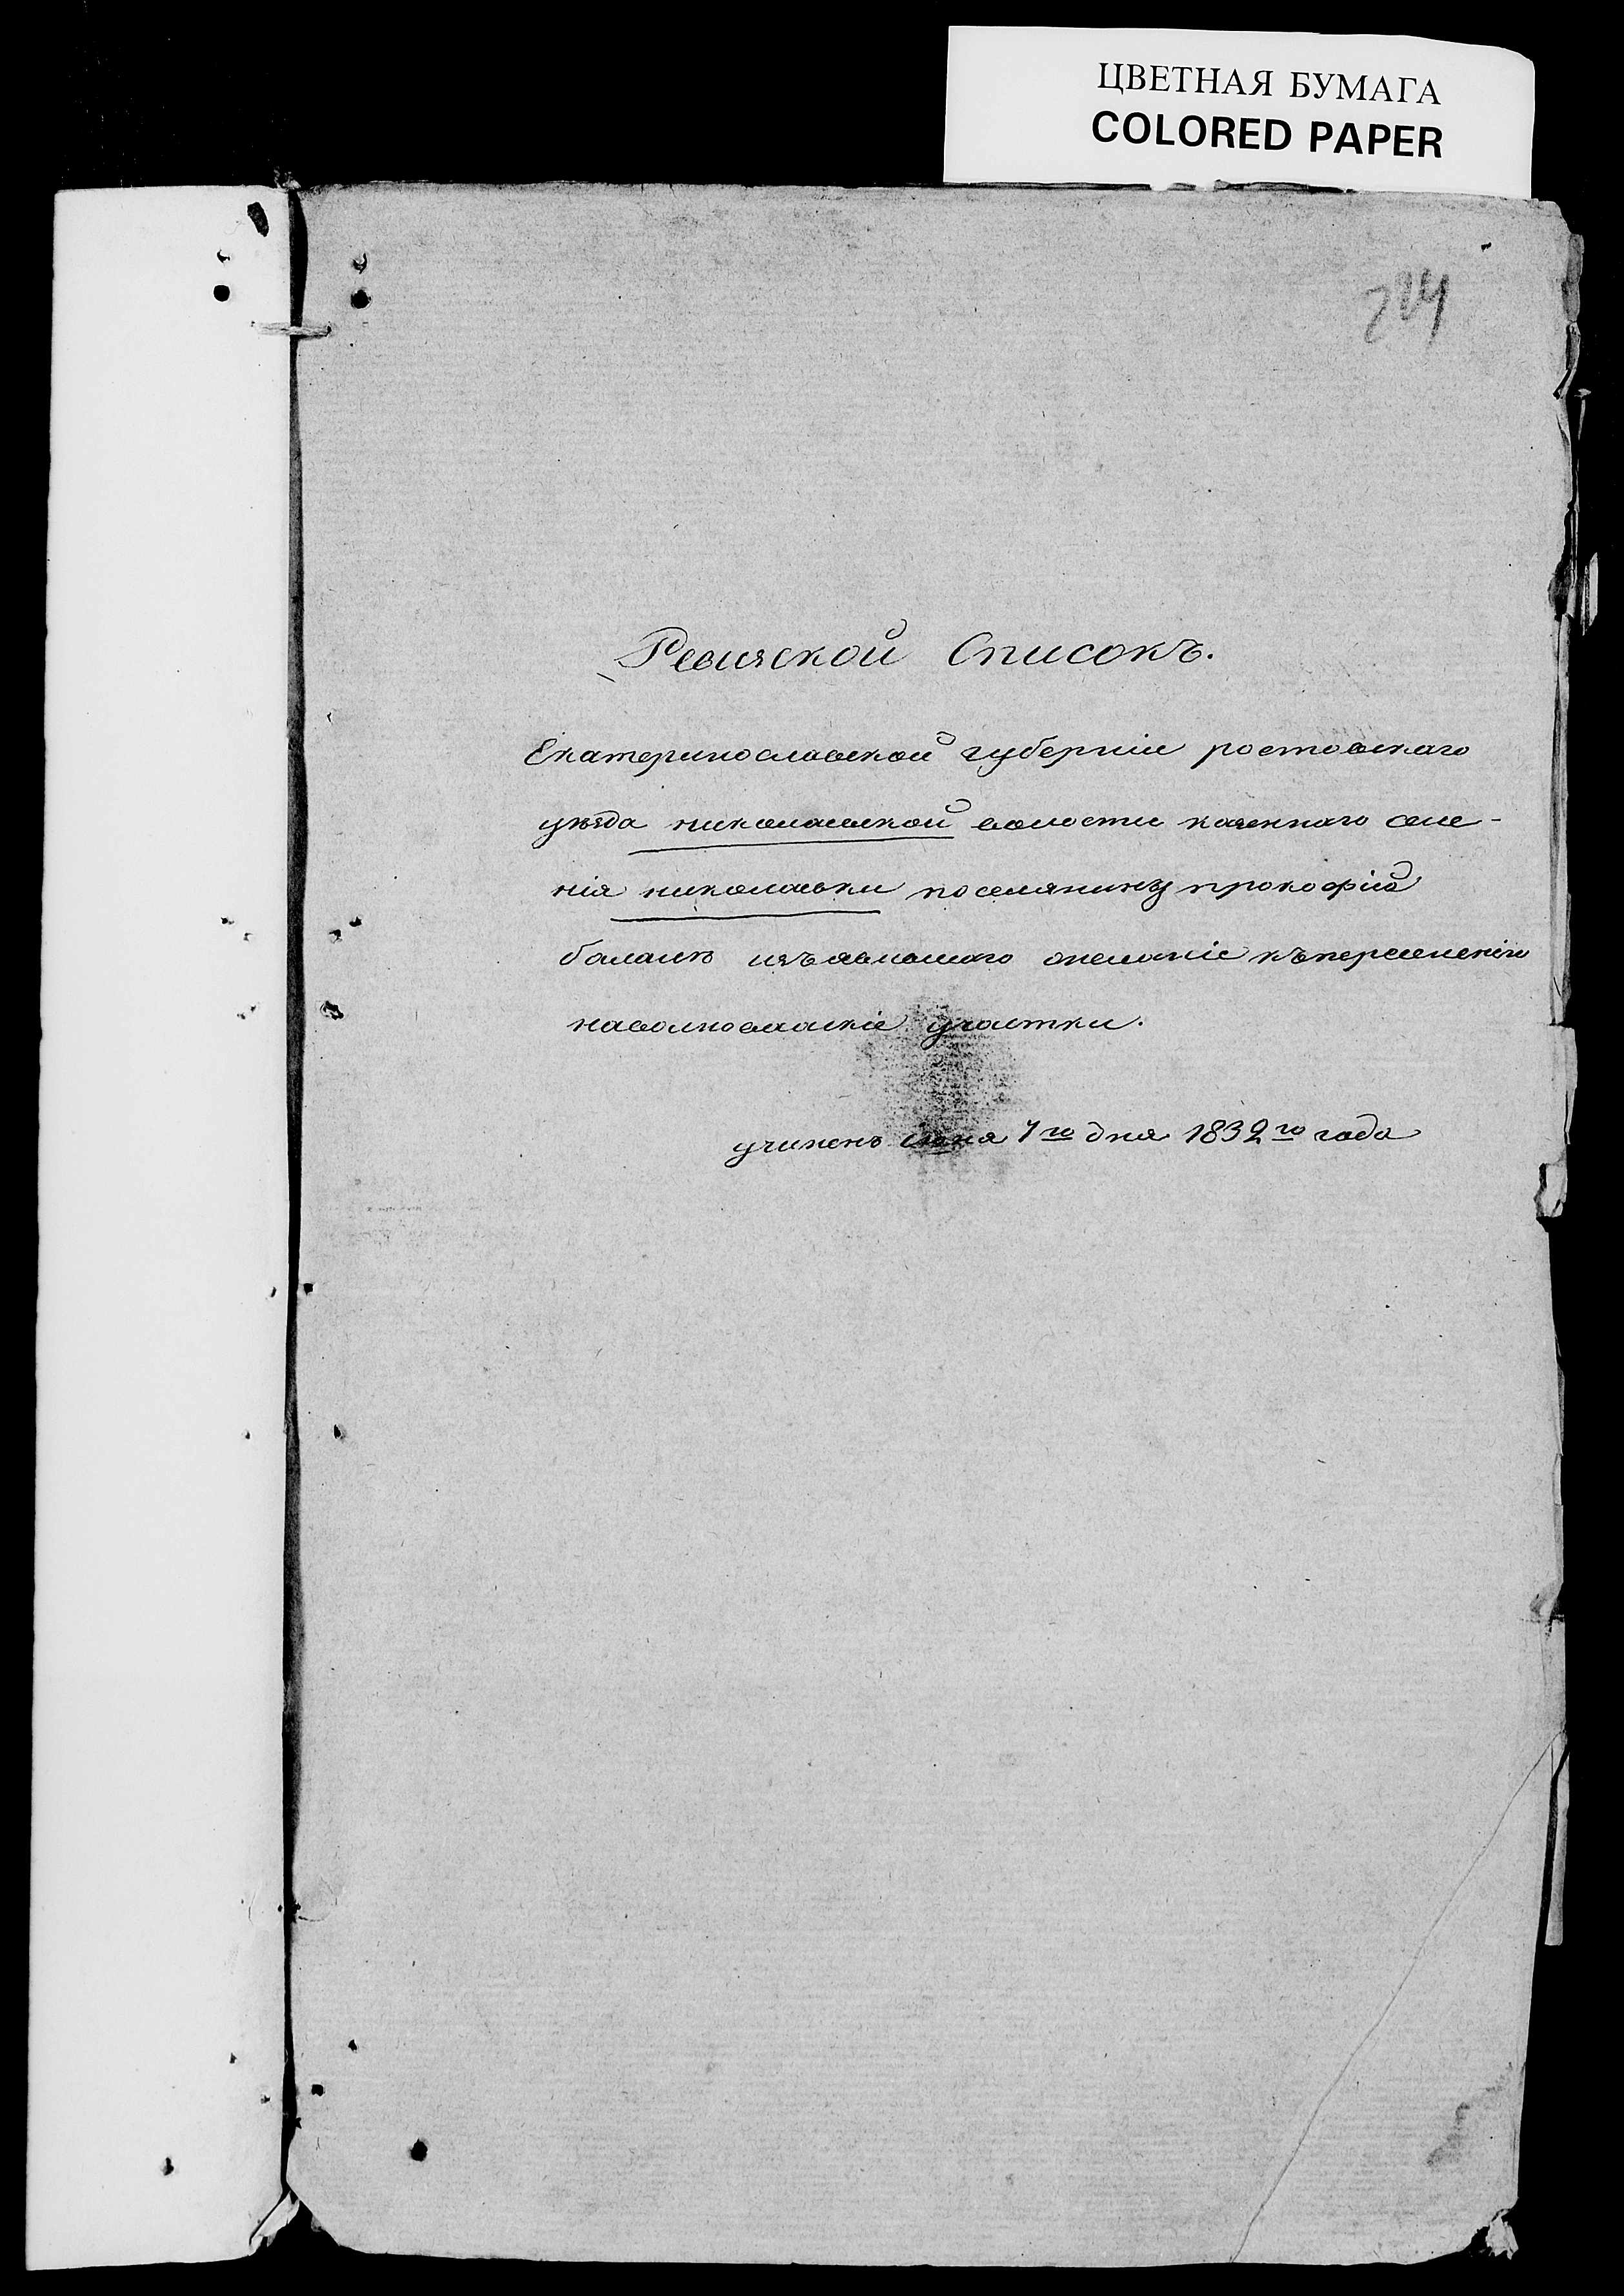 ЦВЕТНАЯ БУМАГА
COLORED PAPER
Ревизской Списокъ.
Екатеринославской губерніи ростовскаго
уѣзда николаевской волости казеннаго селе-
нія николаевки поселянину прокофію
изъявившаго желаніе къпереселенію
участки.
учиненъ 1го дня 1832го года